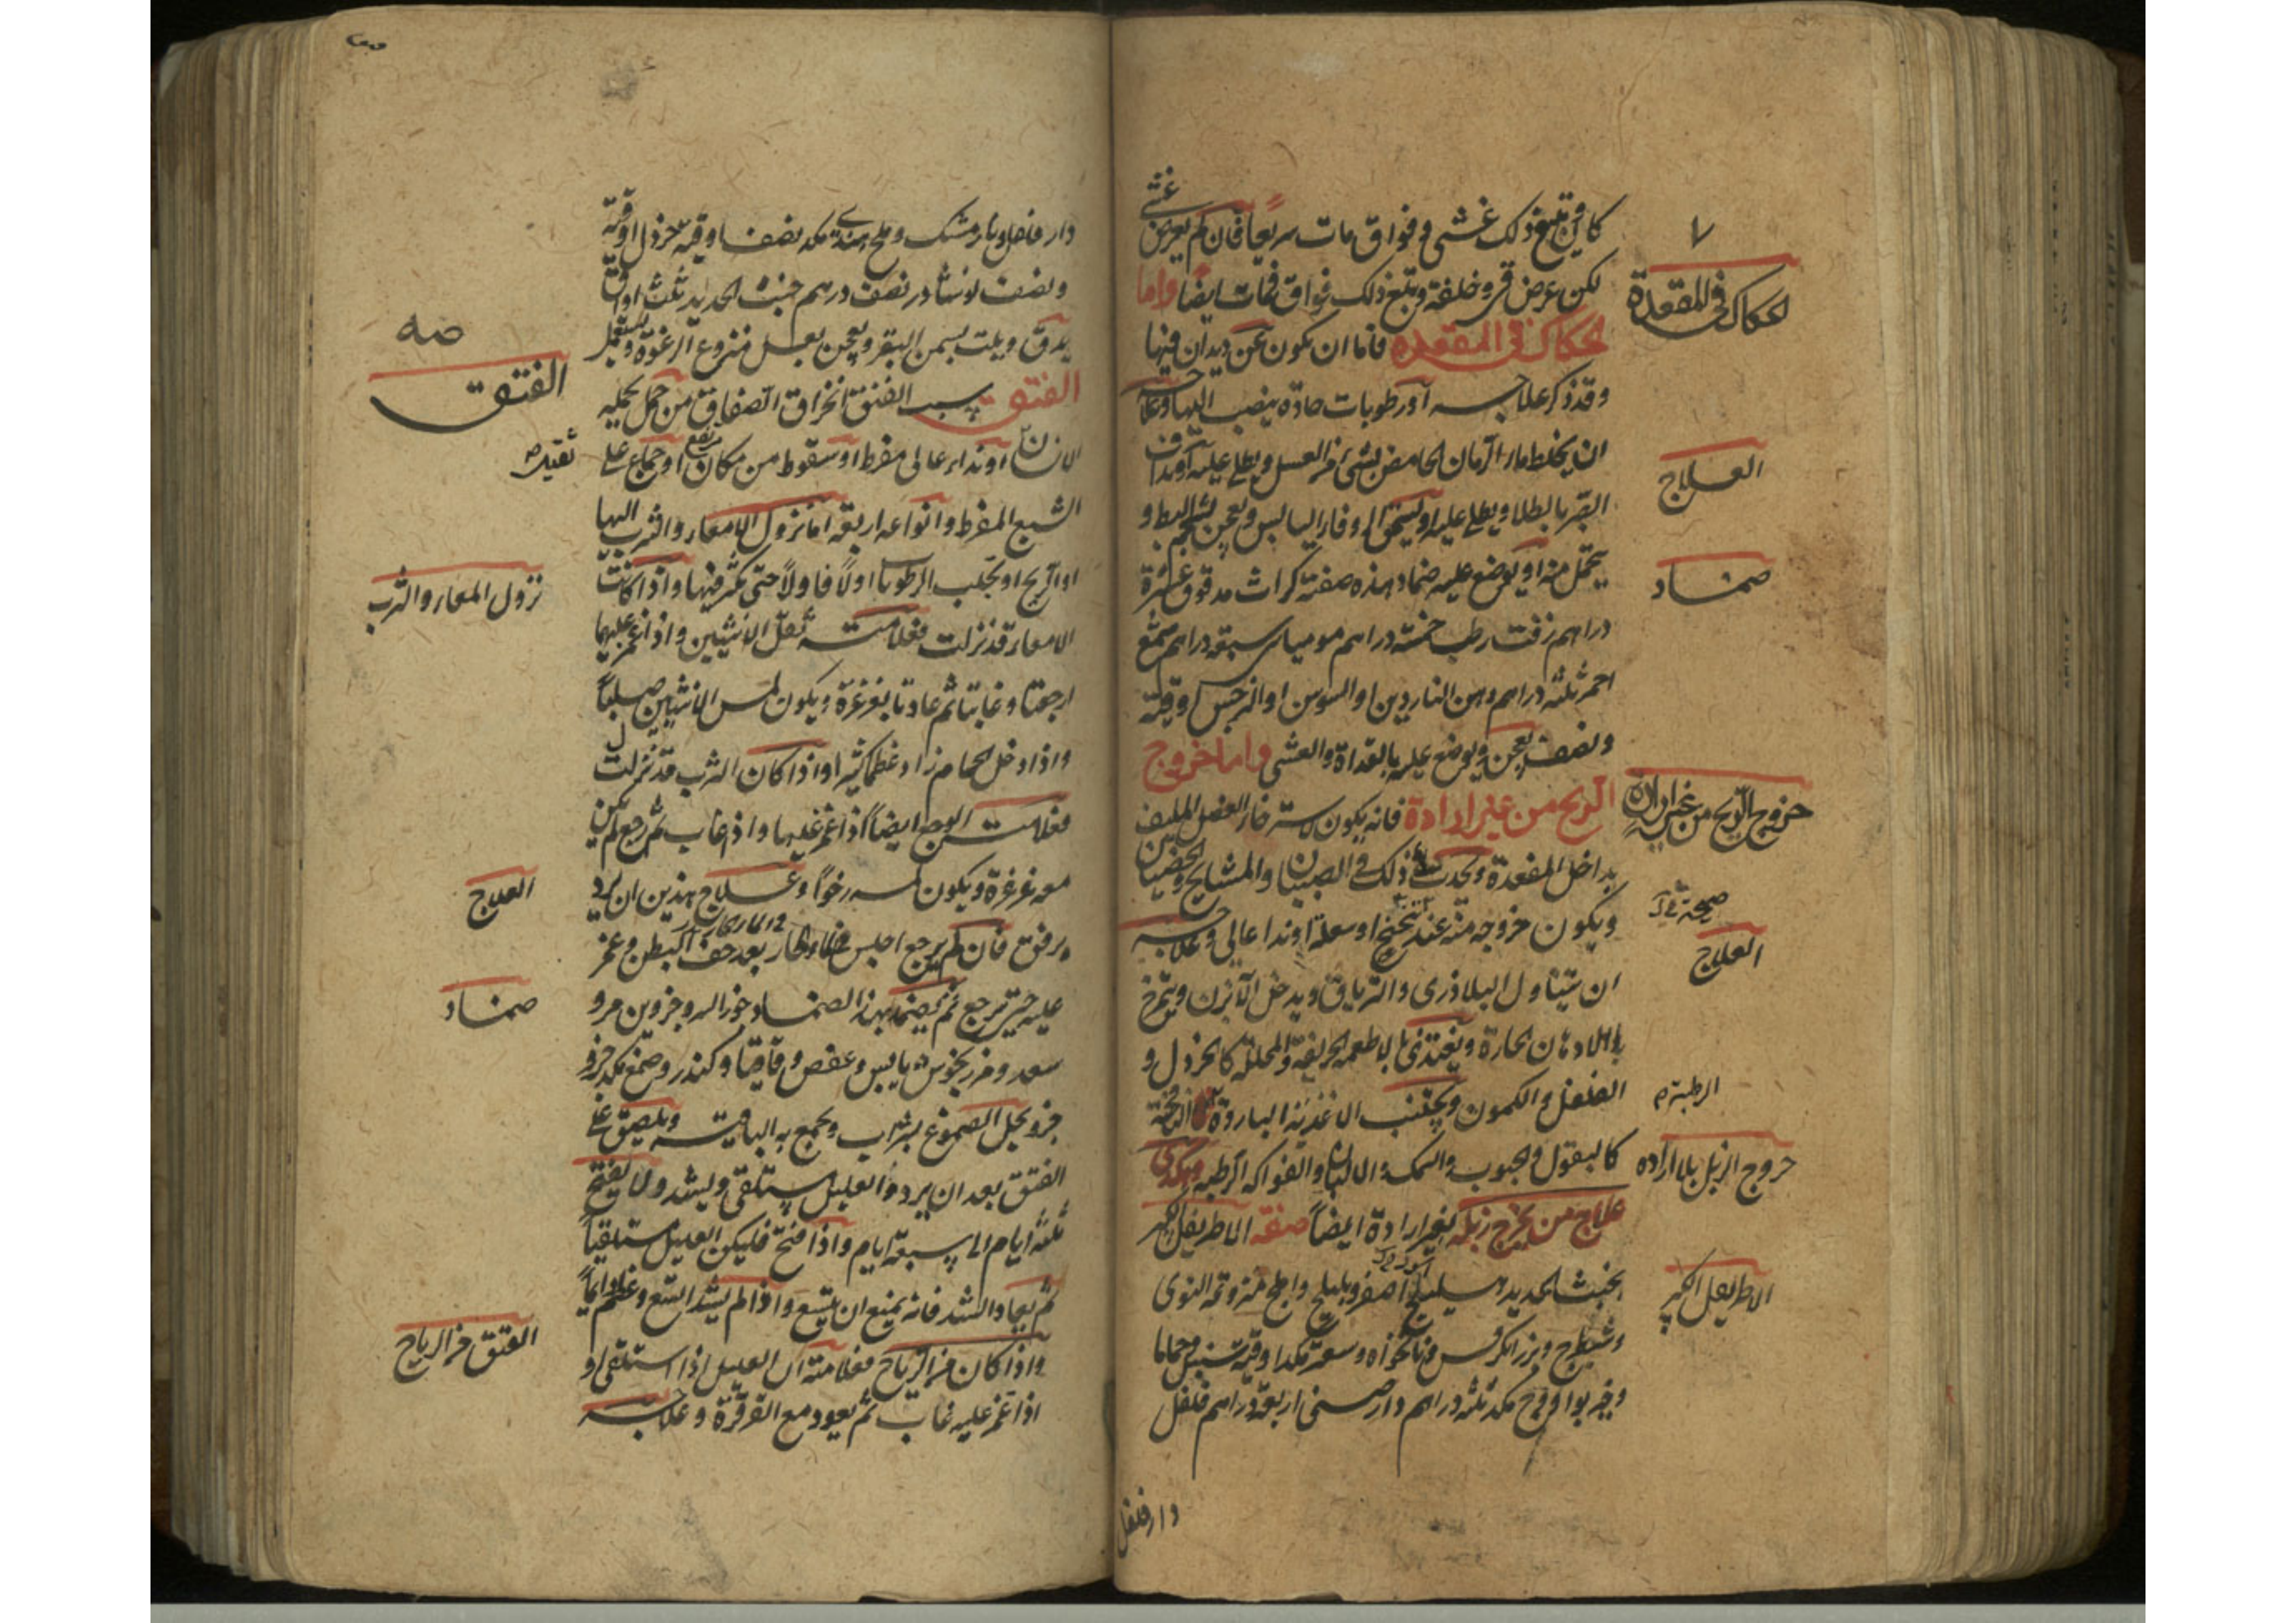 كان وتبع ذلك غشي وفواق مات سريعاً فان لم يعرض غشي
لكن عرض قي وخلفة وتبع ذلك فواق فمات ايضا واما
الحكاك في المقعدة فاما ان يكون عن ديدان فيها
وقد ذكر علاجه او رطوبات حادة ينصب اليها وعلاجه
ان يخلط ماء الرمان الحامض بشيء من العسل ويطلى عليه او يداف
الصبر بالطلا ويطلى عليه او الزوفا اليابس ويعجن بشحم البط و
يتحمل منه او يوضع عليه ضماد هذه صفته كراث مدقوق عشرة
دراهم زفت رطب خمسة دراهم موميا سبعة دراهم شمع
احمر ثلثه دراهم دهن الناردين او السوسن او النرجس اوقية
ونصف يعجن ويوضع عليه بالغداة والعشي واما خروج
الريح من غير ارادة فانه يكون لاسترخاء العضل الملتف
بداخل المقعدة ويحدث ذلك في الصبيان والمشايخ والخصيان
ويكون خروجه منه عند تنحنح او سعلة او نداء عالي وعلاجه
ان يتناول البلاذري والترياق ويدخل الآبزن ويتمرخ
بالادهان الحارة ويغتذي بالاطعمة الحريفة والمحللة كالخردل و
الفلفل والكمون ويجتنب الاغذية الباردة النافخة
كالبقول والحبوب والسمك والالبان والفواكه الرطبة وهكذى
علاج من يخرج زبله بغير ارادة ايضاً صفة الاطريفل الكبير
بخبث الحديد هليلج اصفر وبليلج واملج منزوعة النوى
وشيطرج وبزر الكرفس ونانخواه وسعتر مكد اوقية سنبل وحماما
وخير بوا ووج مكد ثلثه دراهم دارصيني اربعة دراهم فلفل
دار فلفل
الحكاك في المقعدة
العلاج
ضماد
خروج الريح من غير ارادة
العلاج
الرطبة
خروج الزبل بلا اراده
الاطريفل الكبير
دار فلفل ونارمشك وملح هندي مكد نصف اوقية خردل اوقية
ونصف نوشادر نصف درهم خبث الحديد ثلث اواق
يدق ويلت بسمن البقر ويعجن بعسل منزوع الرغوة ويستعمل
الفتق سبب الفتق انخراق الصفاق من حمل يحمله
الانسان او نداء عالي مفرط او سقوط من مكان مرتفع او جماع على
الشبع المفرط وانواعه اربعة اما نزول الامعاء والثرب اليها
او الريح او تجلب الرطوبات اولاً فاولاً حتى تكثر فيها واذا كانت
الامعاء قد نزلت فعلامته ثقل الانثيين واذا غمز عليهما
ارجعتا وغابتا ثم عادتا بغرغرة ويكون لمس الانثيين صلباً
واذا دخل الحمام زاد عظما كثيرا واذا كان الثرب قد نزلت
فعلامته الوجع ايضاً اذا غمز عليها واذا غاب ثم رجع لم يكن
معه غرغرة ويكون لمسه رخواً وعلاج هذين ان يرد
برفق فان لم يرجع اجلس في الماء الحار بعد خف البطن وغمز
عليه حتى ترجع ثم يضمد بهذا الضماد جوز السرو جزوين مرو
سعد ومرزنجوش يابس وعفص واقاقيا وكندر وصمغ مكد جزو
جزو يحل الصموغ بشراب ويجمع به الباقية ويلصق على
الفتق بعد ان يرد والعليل مستلقي ويشد ولا يفتح
ثلثه ايام الى سبعة ايام واذا فتح فليكن العليل مستلقياً
ثم يعاد الشد فانه يمنع ان يتسع واذا لم يشد اتسع وعظم دايماً
واذا كان من الرياح فعلامته ان العليل اذا استلقى او
اذا غمز عليه غاب ثم يعود مع القرقرة وعلاجه
الفتق
نزول المعاء والثرب
العلاج
ضماد
الفتق من الرياح